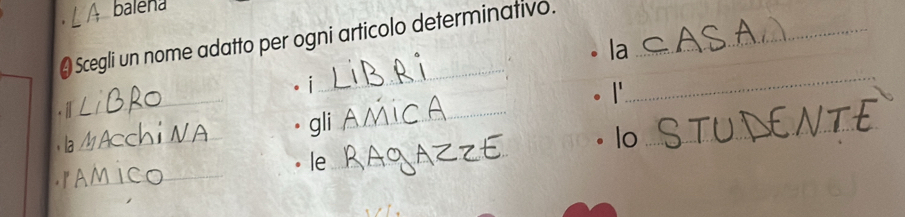 . LA balena
4 Scegli un nome adatto per ogni articolo determinativo.
• il LIBRO
• la MACCHINA
• l' AMICO
• i LIBRI
• gli AMICA
• le RAGAZZE
• la CASA
• l'
• lo STUDENTE